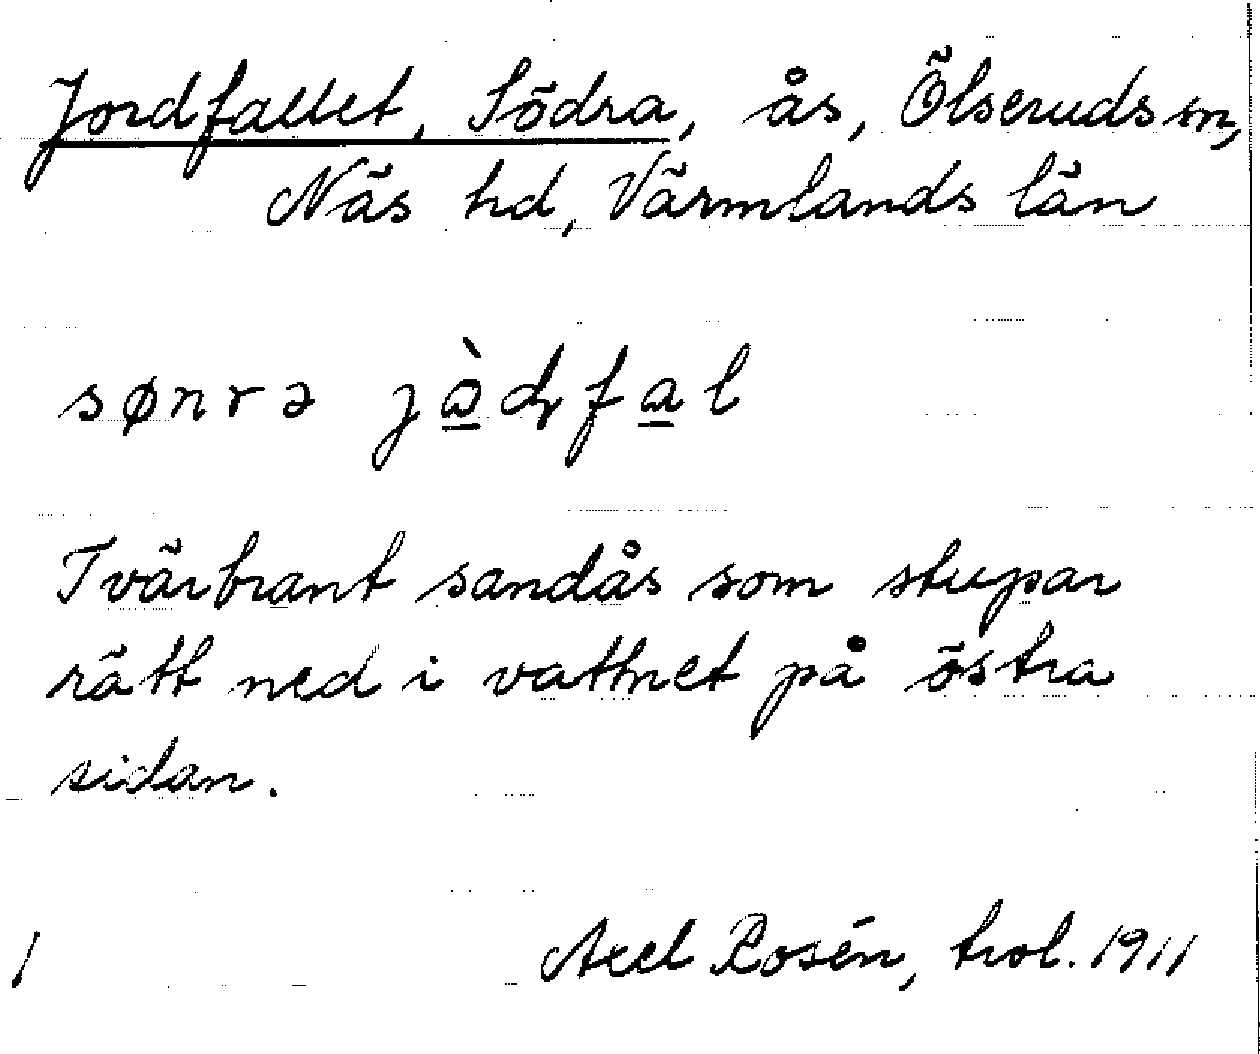 Jordfallet, Södra, ås, Ölseruds sn,
Näs hd, Värmlands län
sønrə jὼɖfal
Tvärbrant sandås som stupar
rätt ned i vattnet på östra
sidan.
1 Axel Rosén, trol. 1911